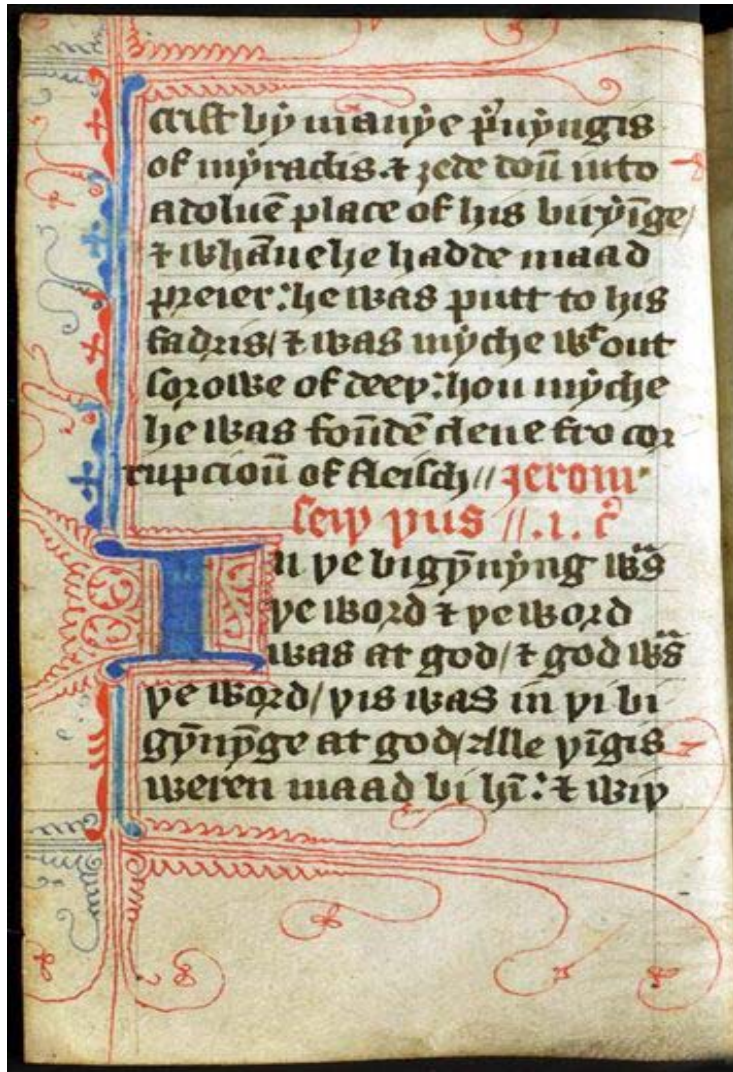 crist bẏ manẏe p̄uẏngis
of mẏraclis. ⁊ ȝede doū into
adoluē place of his birẏīge/
⁊ whāne he hadde maad
preier: he was putt to his
fadris/ ⁊ was mẏche wᵗout
sorowe of deeþ: hou mẏche
he was foūdē clene fro cor
rupcioū of fleisch// Jerom
seiþ þus //.1. cͦ
In þe bigẏ̄nẏng wᵃs
þe word ⁊ þe word
was at god/ ⁊ god wᵃs
þe word/ þis was in þi bi
gẏ̄nẏ̄ge at god/ Alle þīgis
weren maad bi hī: ⁊ wiþ